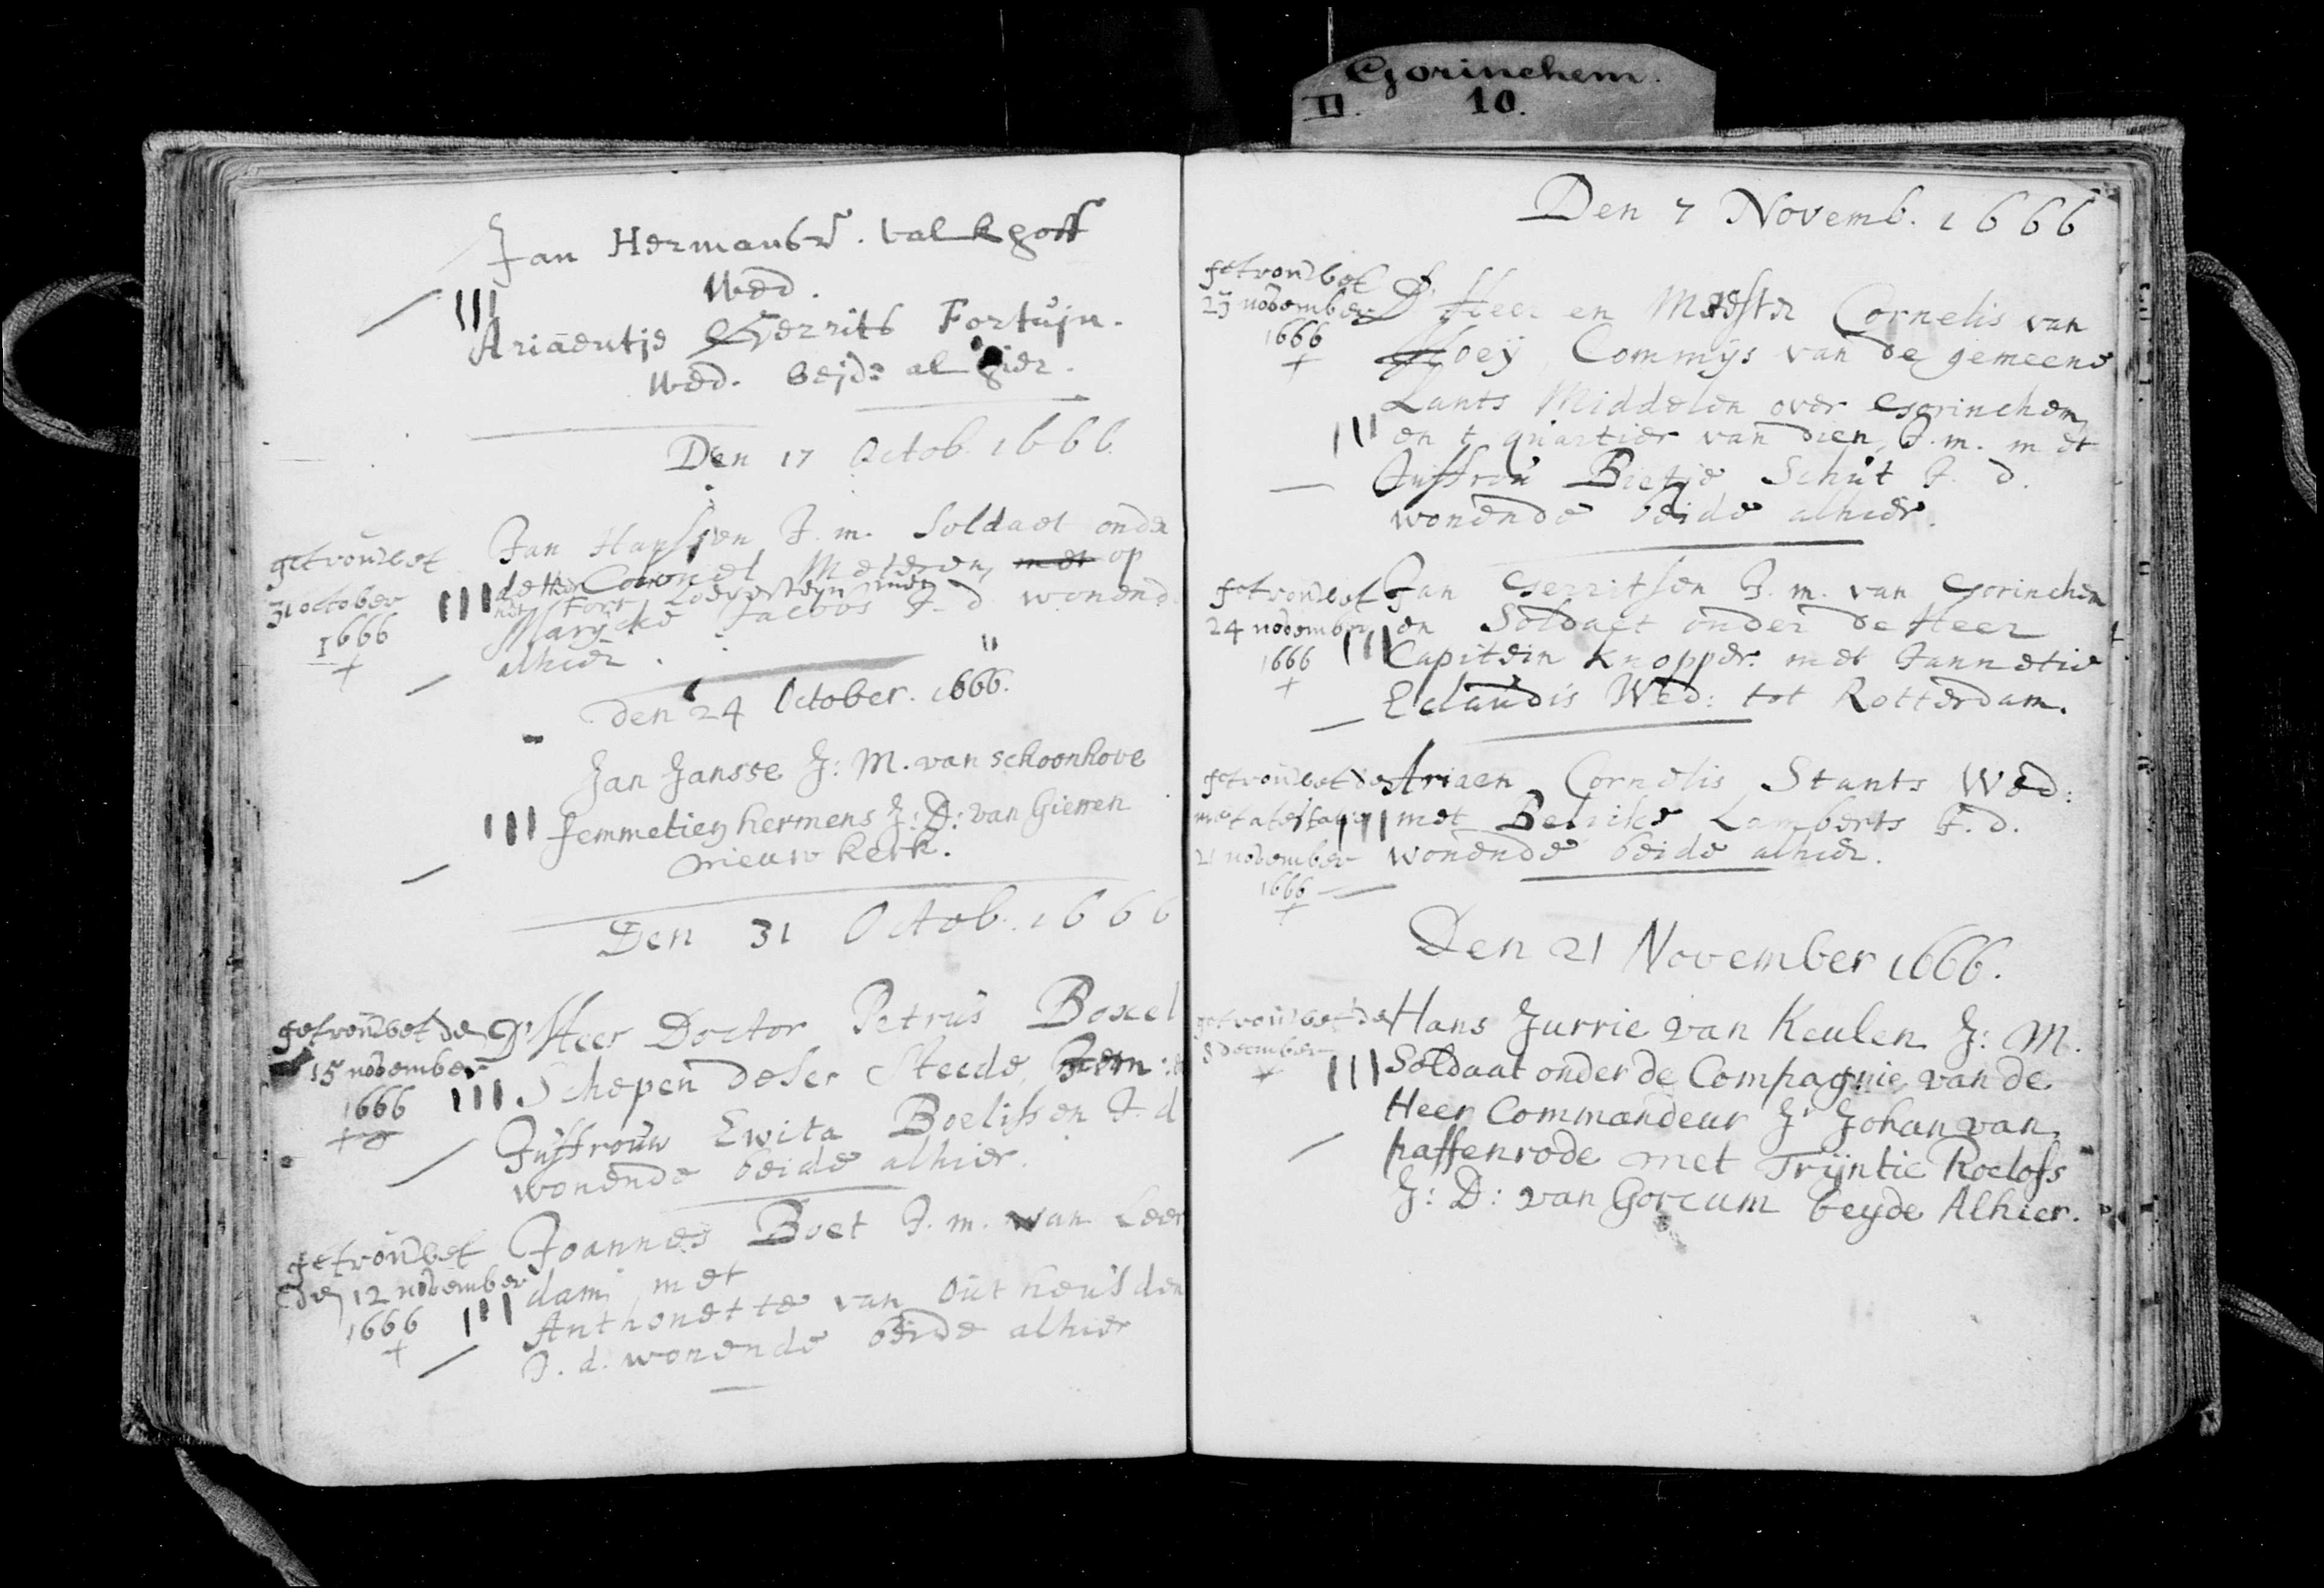 Gorinchem.
II. 10.
Jan Hermansz. valkhoff
Wed.
III
Ariaentje Gerrits Fortujn.
Wed. bejde alhier.
Den 17 Octob. 1666.
getrouwet
31 october
1666
Jan Hanssen J. m. Soldaet onder
de Heer Coronel, met op
III
't Fort Loevesteyn met
Marijcke Jacobs J. d. wonend
alhier.
den 24 October. 1666.
Jan Jansse J: M. van schoonhove
III
femmetien hermens J: D: van Giessen
nieuw kerk.
Den 31 Octob. 1666
getrouwet den
15 november
1666
D' Heer Doctor Petrus Boxel
III
Schepen deser Steede,
Juffrouw Ewita Boelissen J. d
wonende beide alhier.
getrouwet
den 12 november
1666
Joannes Boet J. m. van Leer
III
dam, met
Anthonette van Out heusden
J. d. wonende beide alhier
Den 7 Novemb. 1666
getrouwet
23 november
1666
D' Heer en Meester Cornelis van
Hoeÿ, Commijs van de gemeene
Lants Middelen over Gorinchem
III
en t quartier van dien, J. m. met
Juffrou Bietje Schut J. d.
wonende beide alhier.
getrouwet
24 november
1666
Jan Gerritsen J. m. van Gorinchem
en Soldaet onder de Heer
III
Capitein Knopper. met Jannetie
Eclaudis Wed: tot Rotterdam.
getrouwet den
met atestatie
21 november
1666
Ariaen Cornelis Stants Wed:
III
met Belicke Lamberts J. d.
wonende beide alhier.
Den 21 November 1666.
getrouwet de
8 december
Hans Jurrie van Keulen J: M.
III
Soldaat onder de Compagnie van de
Heer Commandeur Jr Johan van
paffenrode met Trijntie Roelofs
J: D: van Gorcum beyde Alhier.